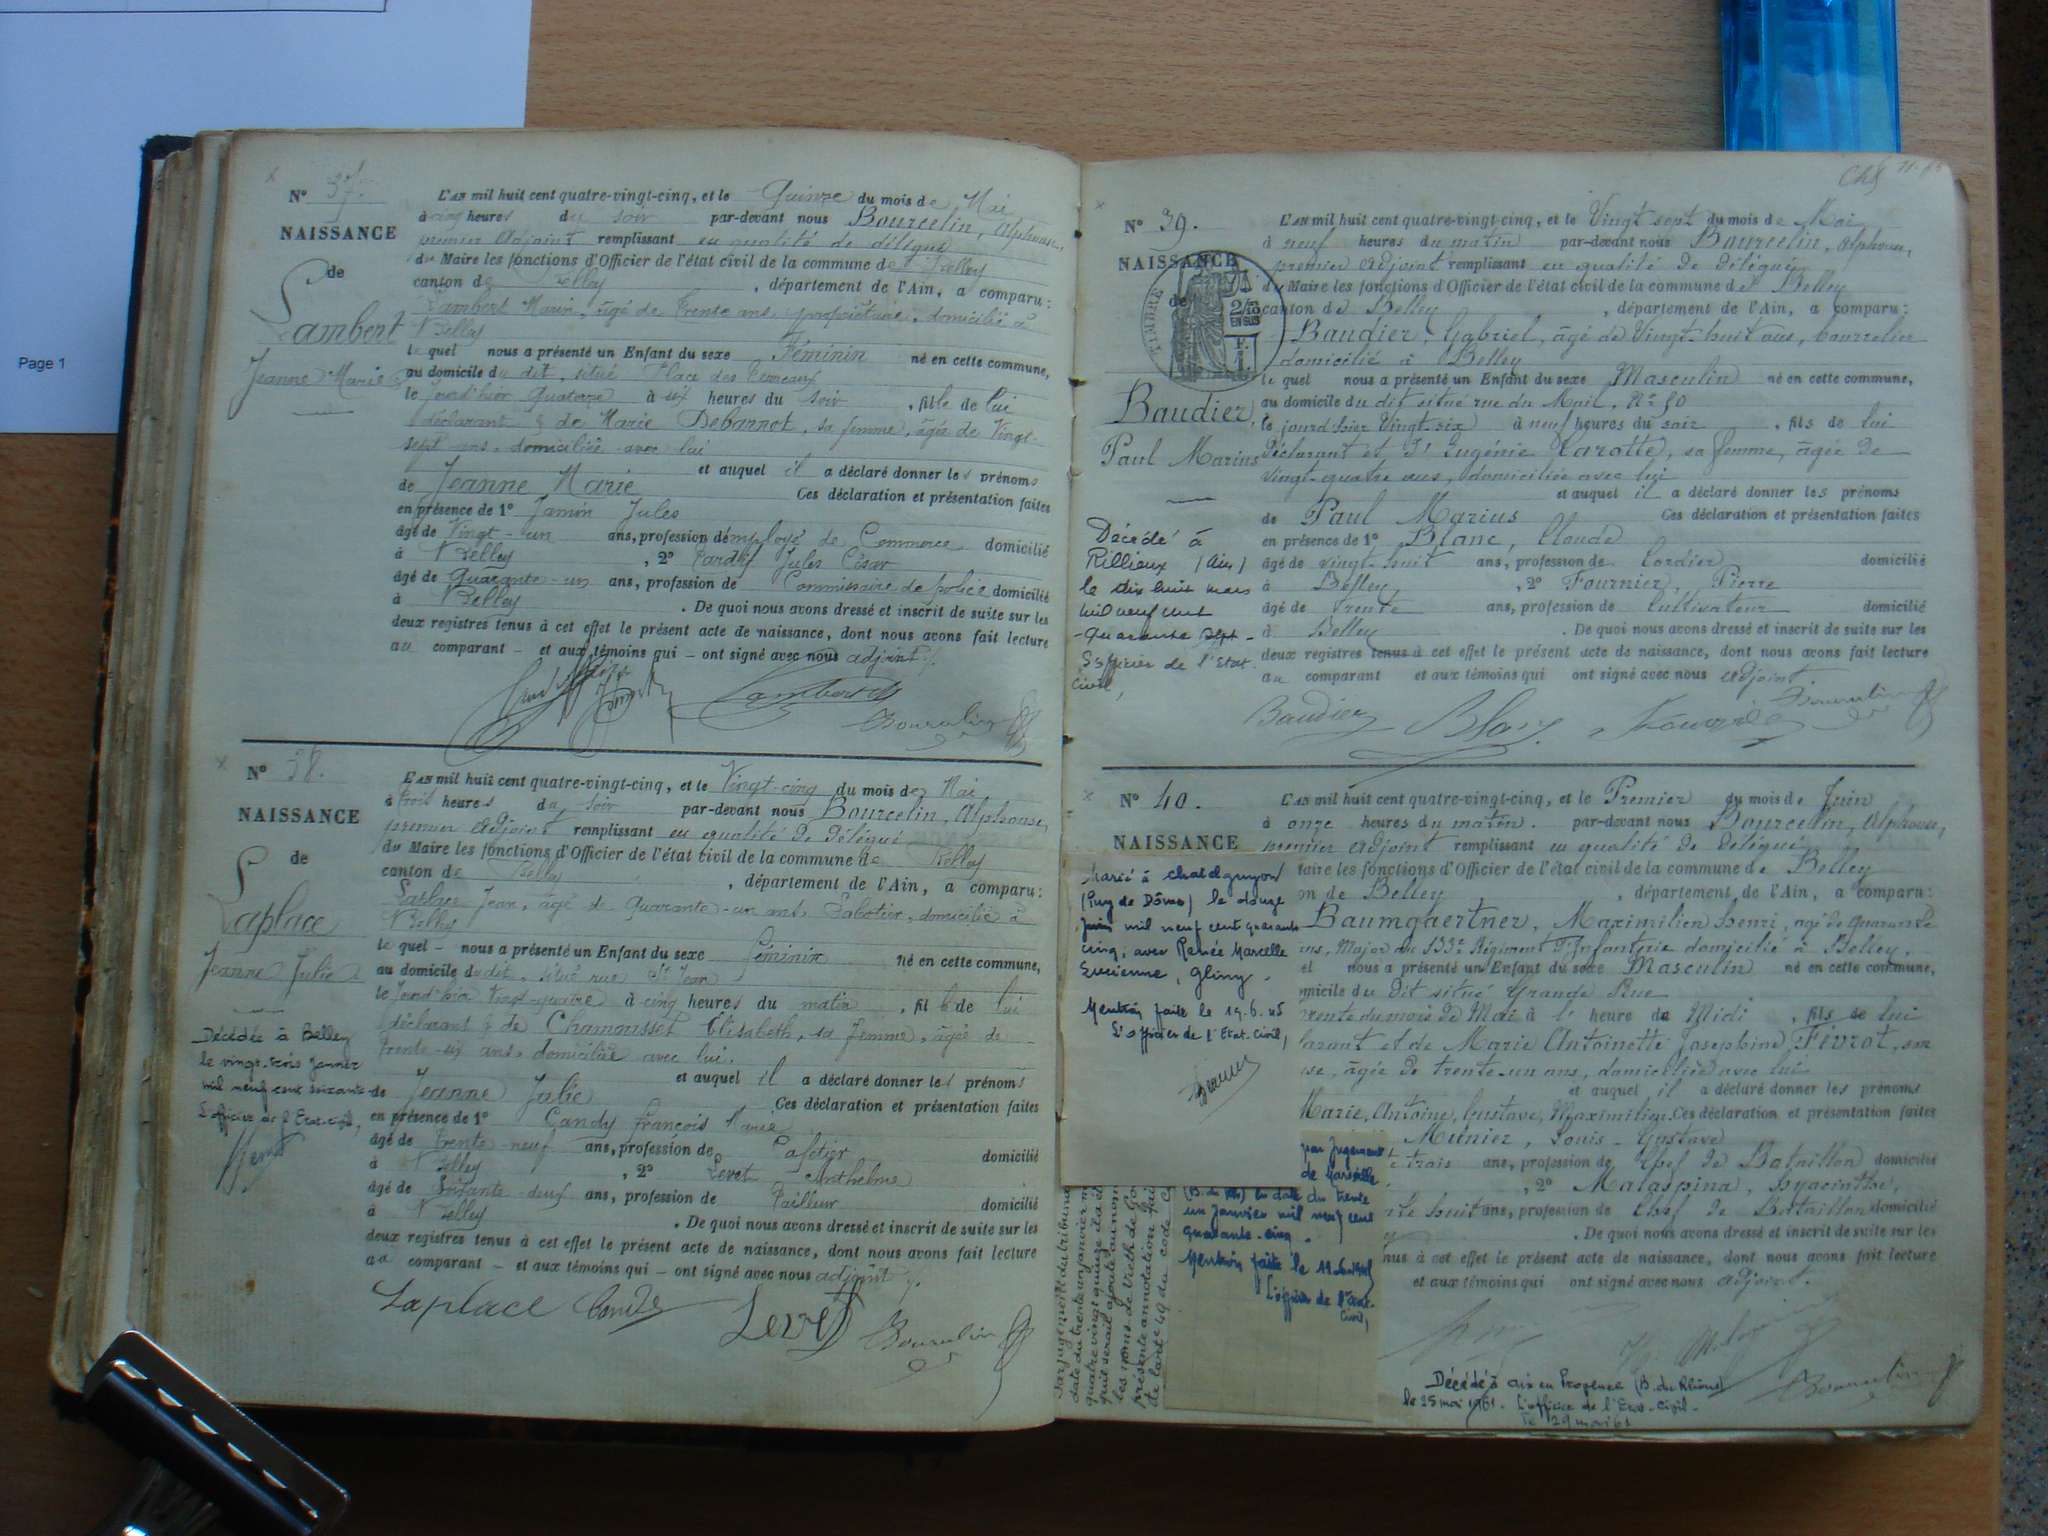 Page 1
N° 37.
NAISSANCE
de
Lambert
Jeanne Marie
L'AN mil huit cent quatre-vingt-cinq, et le Quinze du mois de Mai
à cinq heures du soir par-devant nous Bourcelin, Alphonse,
premier Adjoint remplissant en qualité de délégué
du Maire les fonctions d'Officier de l'état civil de la commune de Belley
canton de Belley, département de l'Ain, a comparu:
Lambert Marin, âgé de trente ans, propriétaire, domicilié à
Belley
lequel nous a présenté un Enfant du sexe Féminin né en cette commune,
au domicile du dit, situé Place des Terreaux
le jourd'hier Quatorze à six heures du soir, fille de lui
déclarant & de Marie Debarnot, sa femme, âgée de Vingt-
sept ans, domiciliée avec lui
et auquel il a déclaré donner les prénoms
de Jeanne Marie Ces déclaration et présentation faites
en présence de 1° Jamin Jules
âgé de Vingt-un ans, profession d'employé de Commerce domicilié
à Belley, 2° Pardif Jules César
âgé de Quarante-un ans, profession de Commissaire de police domicilié
à Belley. De quoi nous avons dressé et inscrit de suite sur les
deux registres tenus à cet effet le présent acte de naissance, dont nous avons fait lecture
au comparant et aux témoins qui ont signé avec nous adjoint
Lambert
Bourcelin
N° 38.
NAISSANCE
de
Laplace
Jeanne Julie
Décédée à Belley
le vingt-trois Janvier
mil neuf cent soixante
L'officier de l'Etat-civil,
L'AN mil huit cent quatre-vingt-cinq, et le Vingt-cinq du mois de Mai
à trois heures du soir par-devant nous Bourcelin, Alphonse,
premier Adjoint remplissant en qualité de délégué
du Maire les fonctions d'Officier de l'état civil de la commune de Belley
canton de Belley, département de l'Ain, a comparu:
Laplace Jean, âgé de Quarante-un ans, Sabotier, domicilié à
Belley
lequel nous a présenté un Enfant du sexe Féminin né en cette commune,
au domicile du dit, situé rue St Jean
le jourd'hier Vingt-quatre à cinq heures du matin, fille de lui
déclarant & de Chamousset Elisabeth, sa femme, âgée de
trente-six ans, domiciliée avec lui.
et auquel il a déclaré donner les prénoms
de Jeanne Julie Ces déclaration et présentation faites
en présence de 1° Candy François Marie
âgé de trente-neuf ans, profession de Cafetier domicilié
à Belley, 2° Levet Anthelme
âgé de Soixante-deux ans, profession de Tailleur domicilié
à Belley. De quoi nous avons dressé et inscrit de suite sur les
deux registres tenus à cet effet le présent acte de naissance, dont nous avons fait lecture
au comparant et aux témoins qui ont signé avec nous adjoint
Laplace Candy Levet Bourcelin
N° 39.
NAISSANCE
de
TIMBRE
Baudier,
Paul Marius
Décédé à
Rillieux (Ain)
le dix huit mars
mil neuf cent
quarante sept
L'officier de l'Etat
Civil,
L'AN mil huit cent quatre-vingt-cinq, et le Vingt sept du mois de Mai
à neuf heures du matin par-devant nous Bourcelin, Alphonse,
premier Adjoint remplissant en qualité de délégué
du Maire les fonctions d'Officier de l'état civil de la commune de Belley
canton de Belley, département de l'Ain, a comparu:
Baudier, Gabriel, âgé de Vingt-huit ans, bourrelier
domicilié à Belley
lequel nous a présenté un Enfant du sexe Masculin né en cette commune,
au domicile du dit situé rue du Mail, N° 50
le jourd'hier Vingt six à neuf heures du soir, fils de lui
Déclarant et d'Eugénie Larotte, sa femme, âgée de
Vingt-quatre ans, domiciliée avec lui
et auquel il a déclaré donner les prénoms
de Paul Marius Ces déclaration et présentation faites
en présence de 1° Blanc, Claude
âgé de vingt-huit ans, profession de Cordier domicilié
à Belley, 2° Fournier, Pierre
âgé de trente ans, profession de Cultivateur domicilié
à Belley. De quoi nous avons dressé et inscrit de suite sur les
deux registres tenus à cet effet le présent acte de naissance, dont nous avons fait lecture
au comparant et aux témoins qui ont signé avec nous adjoint
Baudier Blanc Fournier Bourcelin
N° 40.
NAISSANCE
Marié à Chatelguyon
(Puy de Dôme) le douze
Juin mil neuf cent quarante
cinq, avec Renée Marcelle
Lucienne, Gliny.
Mention faite le 19.6.45
L'officier de l'Etat Civil,
par Jugement
de Marseille
(B. du Rh.) en date du trente
un Janvier mil neuf cent
quarante-cinq.
Mention faite le 19.6.1945
L'officier de l'Etat-
Civil,
L'AN mil huit cent quatre-vingt-cinq, et le Premier du mois de Juin
à onze heures du matin. par-devant nous Bourcelin, Alphonse,
premier Adjoint remplissant en qualité de délégué
Maire les fonctions d'Officier de l'état civil de la commune de Belley
de Belley, département de l'Ain, a comparu:
Baumgaertner, Maximilien Henri, âgé de quarante
ans, Major au 133e Régiment d'Infanterie domicilié à Belley.
nous a présenté un Enfant du sexe Masculin né en cette commune,
du dit situé Grande Rue
trente du mois de Mai à l'heure de Midi, fils de lui
et de Marie Antoinette Josephine Févrot, son
âgée de trente-un ans, domiciliée avec lui
et auquel il a déclaré donner les prénoms
Marie, Antoine, Gustave, Maximilien Ces déclaration et présentation faites
Munier, Louis-Gustave
trois ans, profession de Chef de Bataillon domicilié
, 2° Malaspina, Hyacinthe,
huit ans, profession de Chef de Bataillon domicilié
. De quoi nous avons dressé et inscrit de suite sur les
à cet effet le présent acte de naissance, dont nous avons fait lecture
et aux témoins qui ont signé avec nous adjoint.
Bourcelin
Décédé à Aix en Provence (B. du Rhône)
le 25 mai 1961. L'officier de l'Etat-Civil.
le 29 mai 61